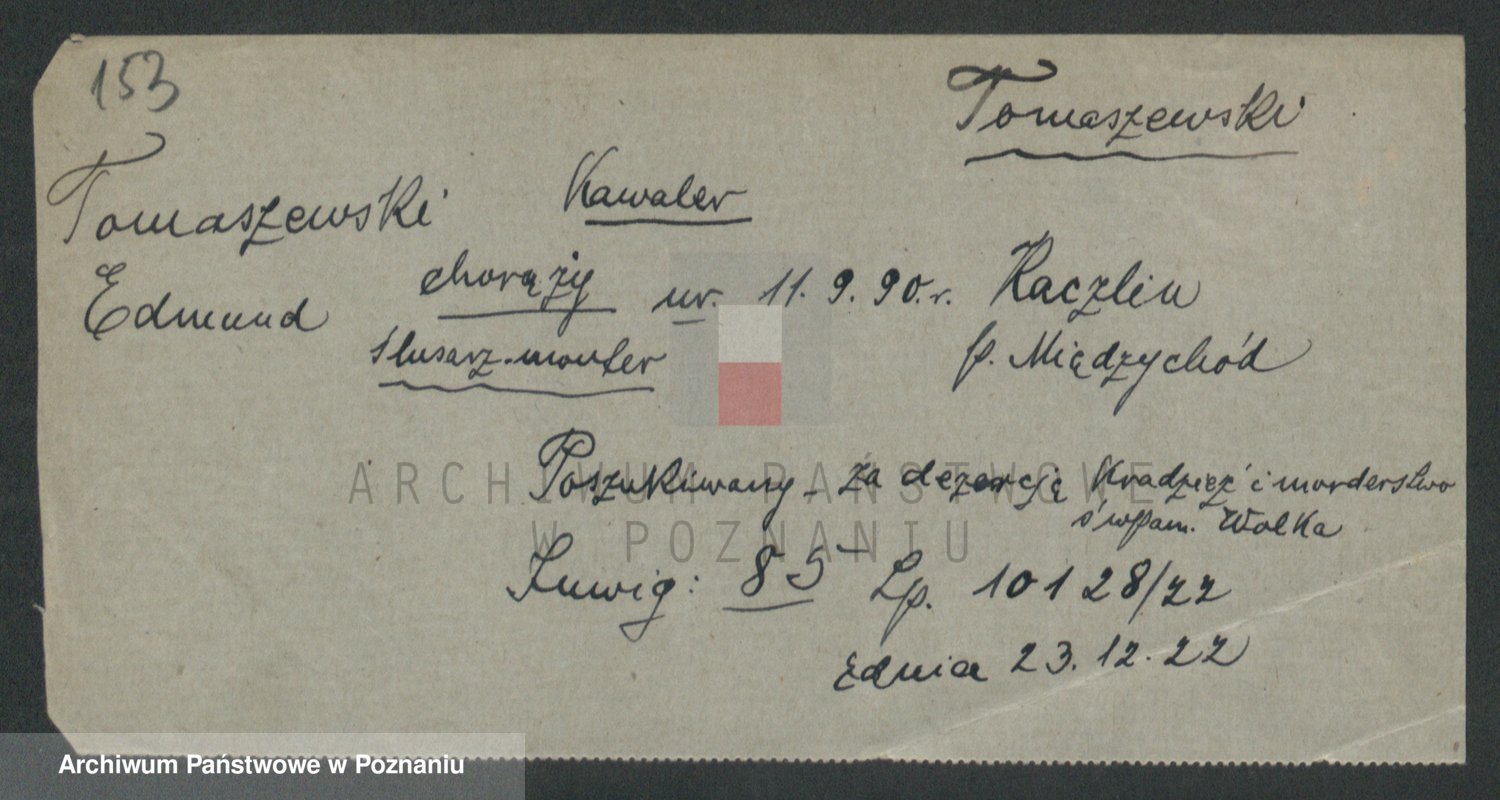 153
Tomaszewski
Tomaszewski
Kawaler
Edmund
chorąży
ur. 11.9.90.r. Kaczlin
ślusarz-monter
p. Międzychód
Poszukiwany - za dezercję Kradzież i morderstwo
ś wpam. Wolka
Inwig: 85 Lp. 10128/22
zdnia 23.12.22
ARCHIWUM PAŃSTWOWE
W POZNANIU
Archiwum Państwowe w Poznaniu